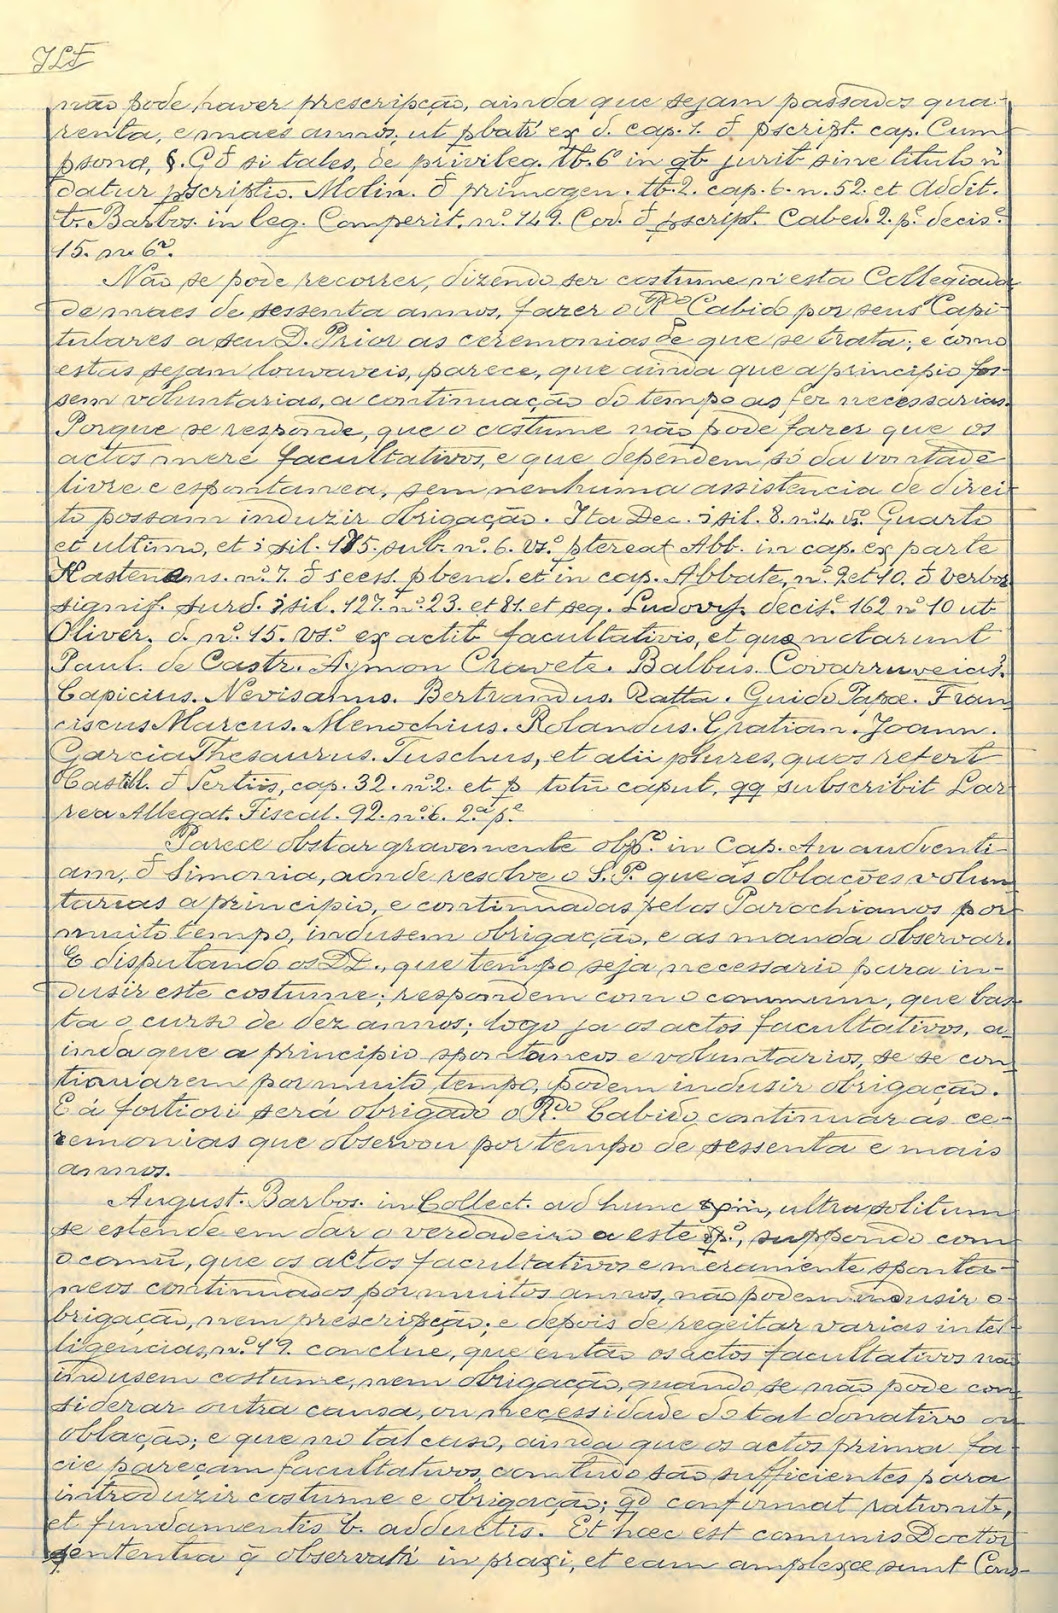 JLF
não pode, haver prescripção, ainda que sejam passados qua-
renta, e maes annos, ut pbatr' ex d. cap. 1. đ pscript. cap. Cum
psona, §. Qđ si tales, de privileg. tb. 6º in qb jurib sine titulo ñ
datur pscriptio. Molin. đ primogen. tb. 2. cap. 6. n. 52. et Addit.
tb. Barbos. in leg. Comperit. nº. 149. Cod. đ pscript. Cabed. 2. pe. decis.e
15. nu. 6º.
Não se pode recorrer, dizendo ser costume n'esta Collegiada
de maes de sessenta annos, fazer o Rdo Cabido por seus Capi-
tulares a seu D. Prior as ceremonias de que se trata; e como
estas sejam louvaveis, parece, que ainda que a principio fos-
sem voluntarias, a continuação do tempo as fez necessarias.
Porque se responde, que o costume não pode fazer que os
actos mere facultativos, e que dependem só da vontade
livre e espontanea, sem nenhuma assistencia de direi-
to possam induzir obrigação. Ita Dec. ɔsil. 8. nº. 4. vs.º Quarto
et ultimo, et ɔsil. 185. sub. nº. 6. vs.º ptereat Abb. in cap. ex parte
Hastenens. nº. 7. đ scess. pbend. et in cap. Abbate, nº. 9. et 10. đ verbor
signif. Surd. ɔsil. 127. nº. 23. et 81. et seq. Ludovys. decis.e 162 nº 10 ut
Oliver. d. nº. 15. vs.º ex actib facultativis, et que notarunt
Paul. de Castr. Aymon Cravete. Balbus. Covarruveias.
Capicius. Nevisanus. Bertrandus. Ratta. Guido Papæ. Fran-
ciscus Marcus. Menochius. Rolandus. Gratian. Joann.
Garcia Thesaurus. Tuschus, et alii plures, quos refert
Castill. đ Tertiis, cap. 32. nº 2. et p totũ caput, qq subscribit Lar-
rea Allegat. Fiscal. 92. nº. 6. 2.a p.e
Parece obstar gravemente in Cap. Au audienti-
am, đ Simonia, aonde resolve o S. P. que ás oblações volun-
tarias a principio, e continuadas pelos Parochianos por
muito tempo, indusem obrigação, e as manda observar.
E disputando os DD., que tempo seja necessario para in-
dusir este costume; respondem com o commum, que bas-
ta o curso de dez annos; logo ja os actos facultativos, a-
inda que a principio spontaneos e voluntarios, se se con-
tinuarem por muito tempo, podem indusir obrigação.
E á fortiori será obrigado o Rdo Cabido continuar as ce-
remonias que observou por tempo de sessenta e mais
annos.
August. Barbos. in Collect. ad hunc, ultra solitum
se estende em dar o verdadeiro a este, suppondo com
o comũ, que os actos facultativos e meramente sponta-
neos continuados por muitos annos, não podem indusir o-
brigação, nem prescripção; e depois de regeitar varias intel-
ligencias, nº. 19. conclue, que então os actos facultativos não
indusem costume, nem obrigação, quando se não pode con-
siderar outra causa, ou necessidade do tal donativo ou
oblação; e que no tal caso, ainda que os actos prima fa-
cie pareçam facultativos, comtudo são sufficientes para
introduzir costume e obrigação; qđ confirmat rationib,
et fundamentis b. adductis. Et hæc est comunis Doctor
sententia q̃ observatr' in praxi, et eam amplexæ sunt Cons-